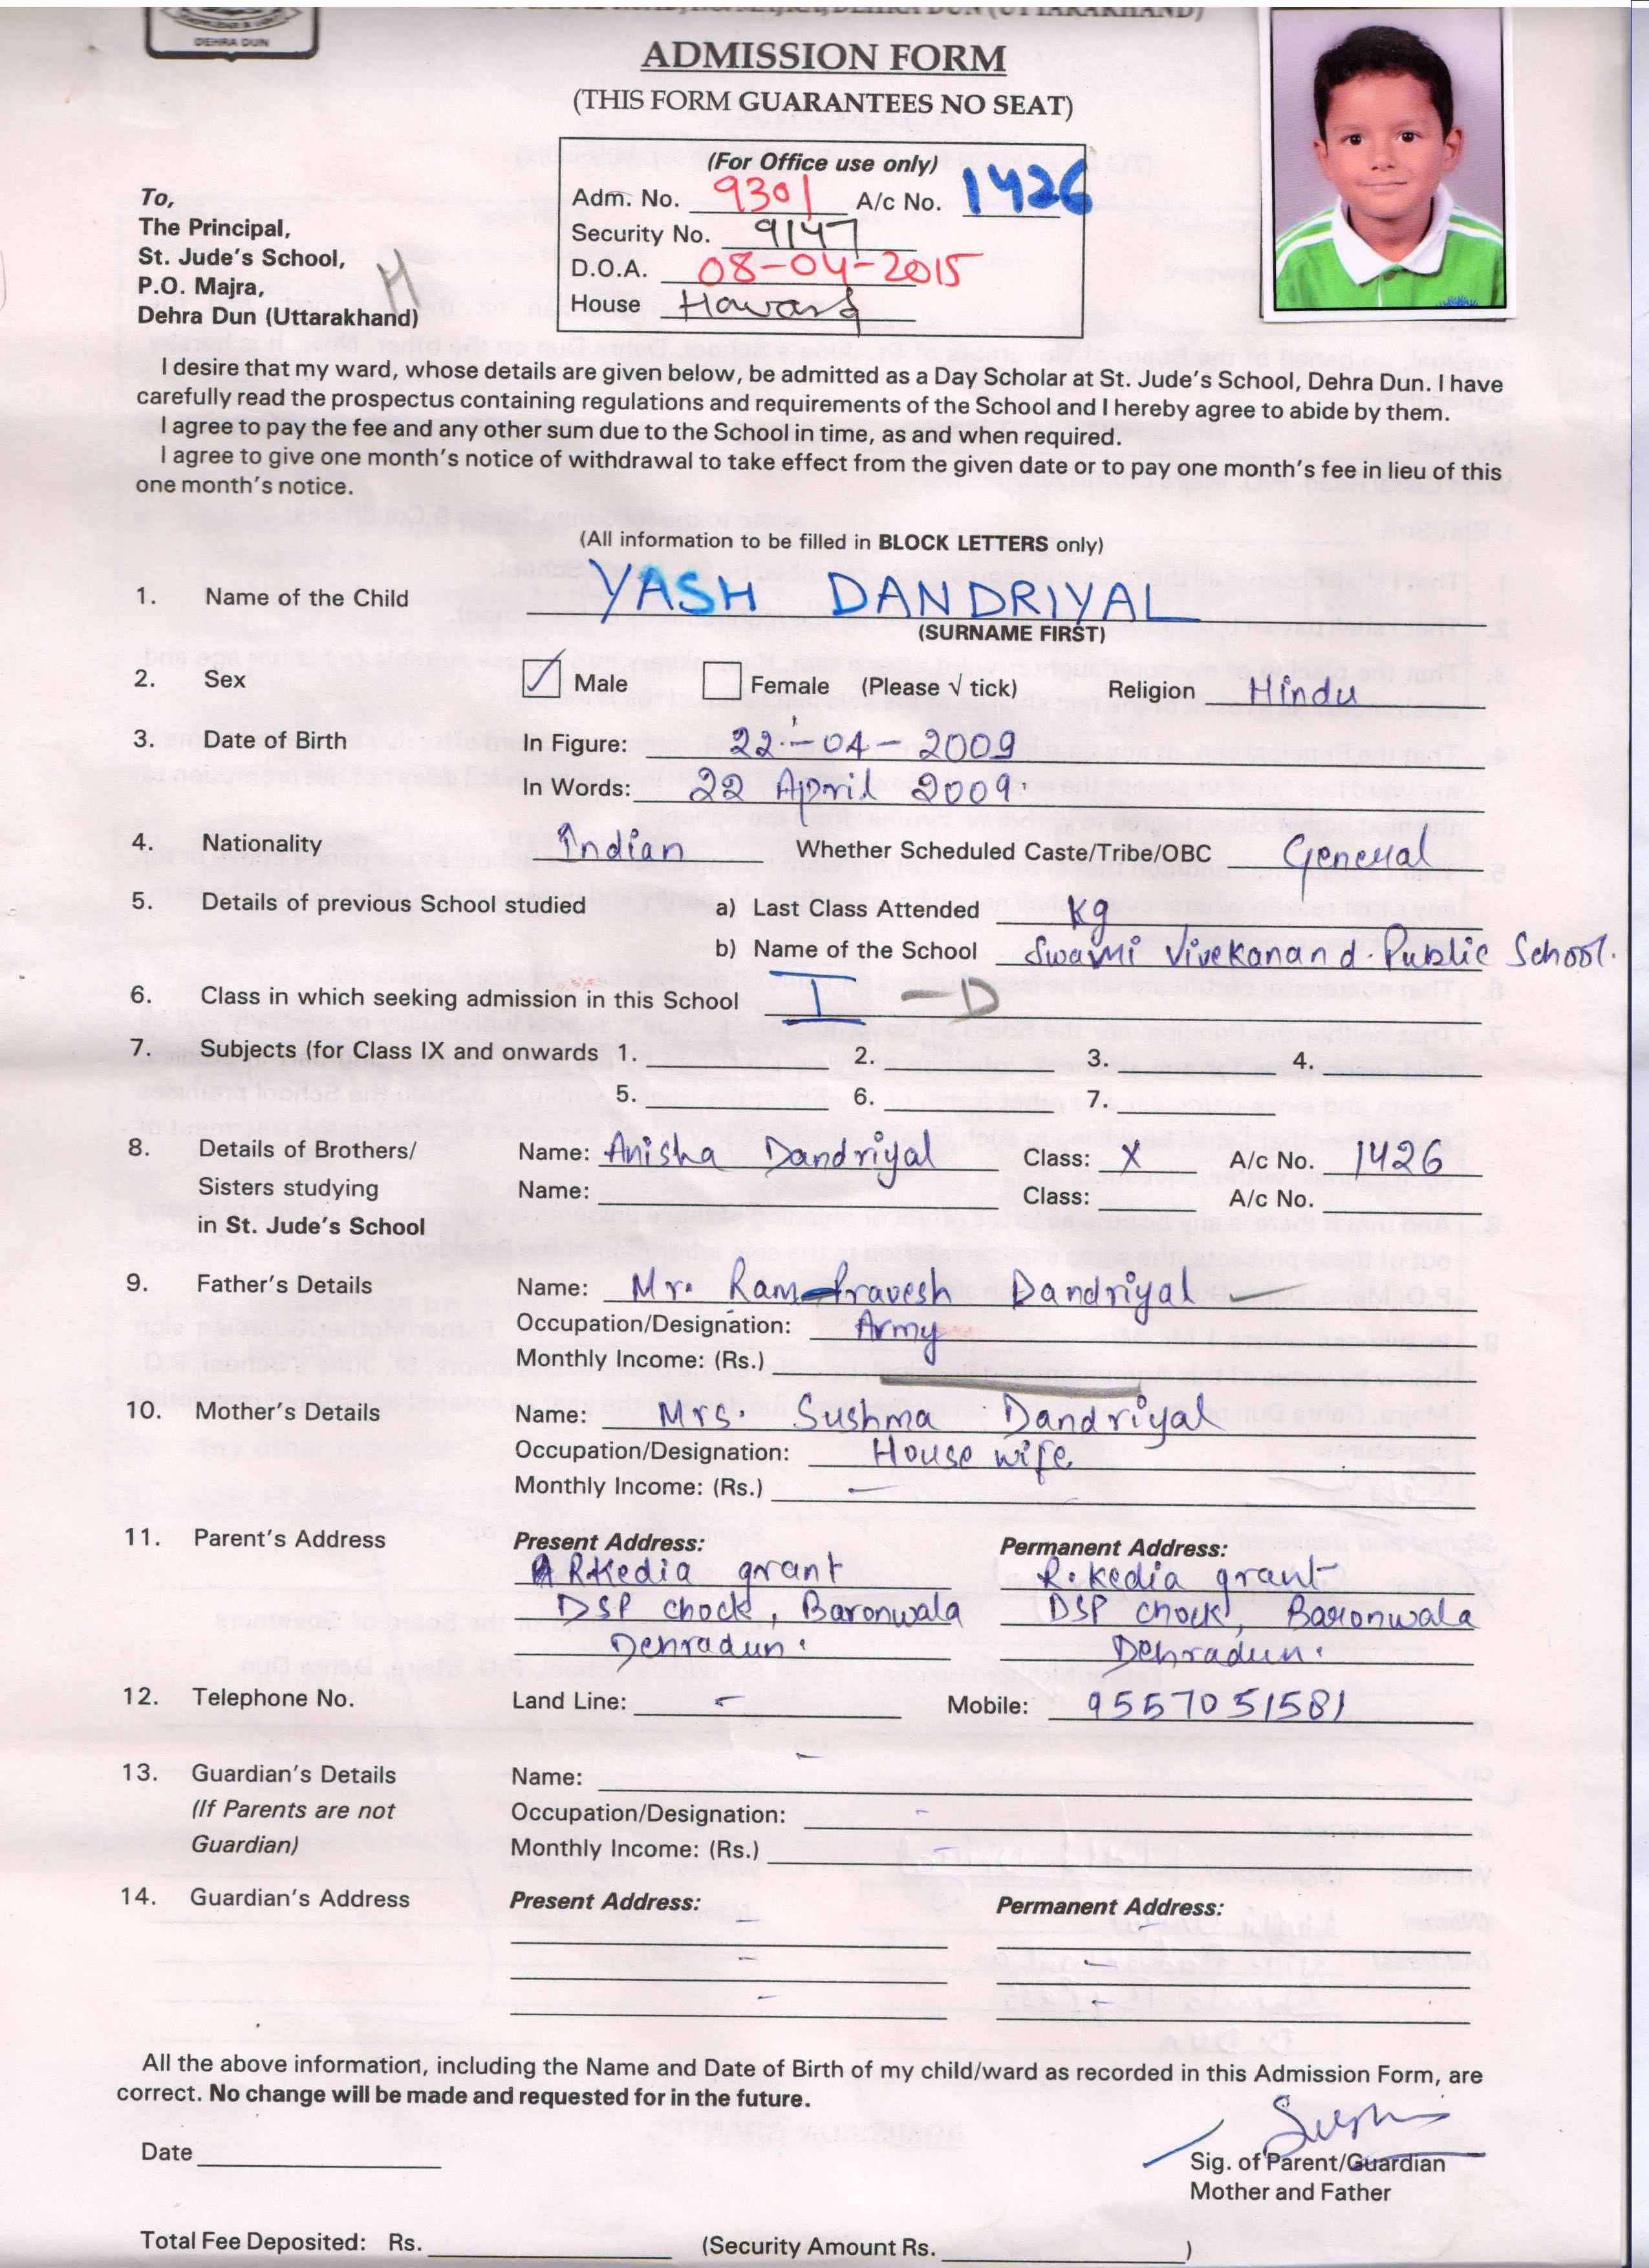 DEHRA DUN
DEHRA DUN (UTTARAKHAND)
ADMISSION FORM
(THIS FORM GUARANTEES NO SEAT)
(For Office use only)
Adm. No. 9301 A/c No. 1426
Security No. 9147
D.O.A. 08-04-2015
House Howard
To,
The Principal,
St. Jude's School,
P.O. Majra,
Dehra Dun (Uttarakhand)
H
I desire that my ward, whose details are given below, be admitted as a Day Scholar at St. Jude's School, Dehra Dun. I have
carefully read the prospectus containing regulations and requirements of the School and I hereby agree to abide by them.
I agree to pay the fee and any other sum due to the School in time, as and when required.
I agree to give one month's notice of withdrawal to take effect from the given date or to pay one month's fee in lieu of this
one month's notice.
(All information to be filled in BLOCK LETTERS only)
1. Name of the Child YASH DANDRIYAL
(SURNAME FIRST)
2. Sex Male Female (Please √ tick) Religion Hindu
3. Date of Birth In Figure: 22-04-2009
In Words: 22 April 2009.
4. Nationality Indian Whether Scheduled Caste/Tribe/OBC General
5. Details of previous School studied a) Last Class Attended Kg
b) Name of the School Swami Vivekanand Public School.
6. Class in which seeking admission in this School I - D
7. Subjects (for Class IX and onwards 1. 2. 3. 4.
5. 6. 7.
8. Details of Brothers/ Name: Anisha Dandriyal Class: X A/c No. 1426
Sisters studying Name: Class: A/c No.
in St. Jude's School
9. Father's Details Name: Mr. Ram Pravesh Dandriyal
Occupation/Designation: Army
Monthly Income: (Rs.)
10. Mother's Details Name: Mrs. Sushma Dandriyal
Occupation/Designation: House wife
Monthly Income: (Rs.) -
11. Parent's Address Present Address: Permanent Address:
RKedia grant R.kedia grant
DSP chock, Baronwala DSP chock, Baronwala
Dehradun. Dehradun.
12. Telephone No. Land Line: - Mobile: 9557051581
13. Guardian's Details Name: -
(If Parents are not Occupation/Designation: -
Guardian) Monthly Income: (Rs.) -
14. Guardian's Address Present Address: Permanent Address:
All the above information, including the Name and Date of Birth of my child/ward as recorded in this Admission Form, are
correct. No change will be made and requested for in the future.
Date
Sig. of Parent/Guardian
Mother and Father
Total Fee Deposited: Rs. (Security Amount Rs. )